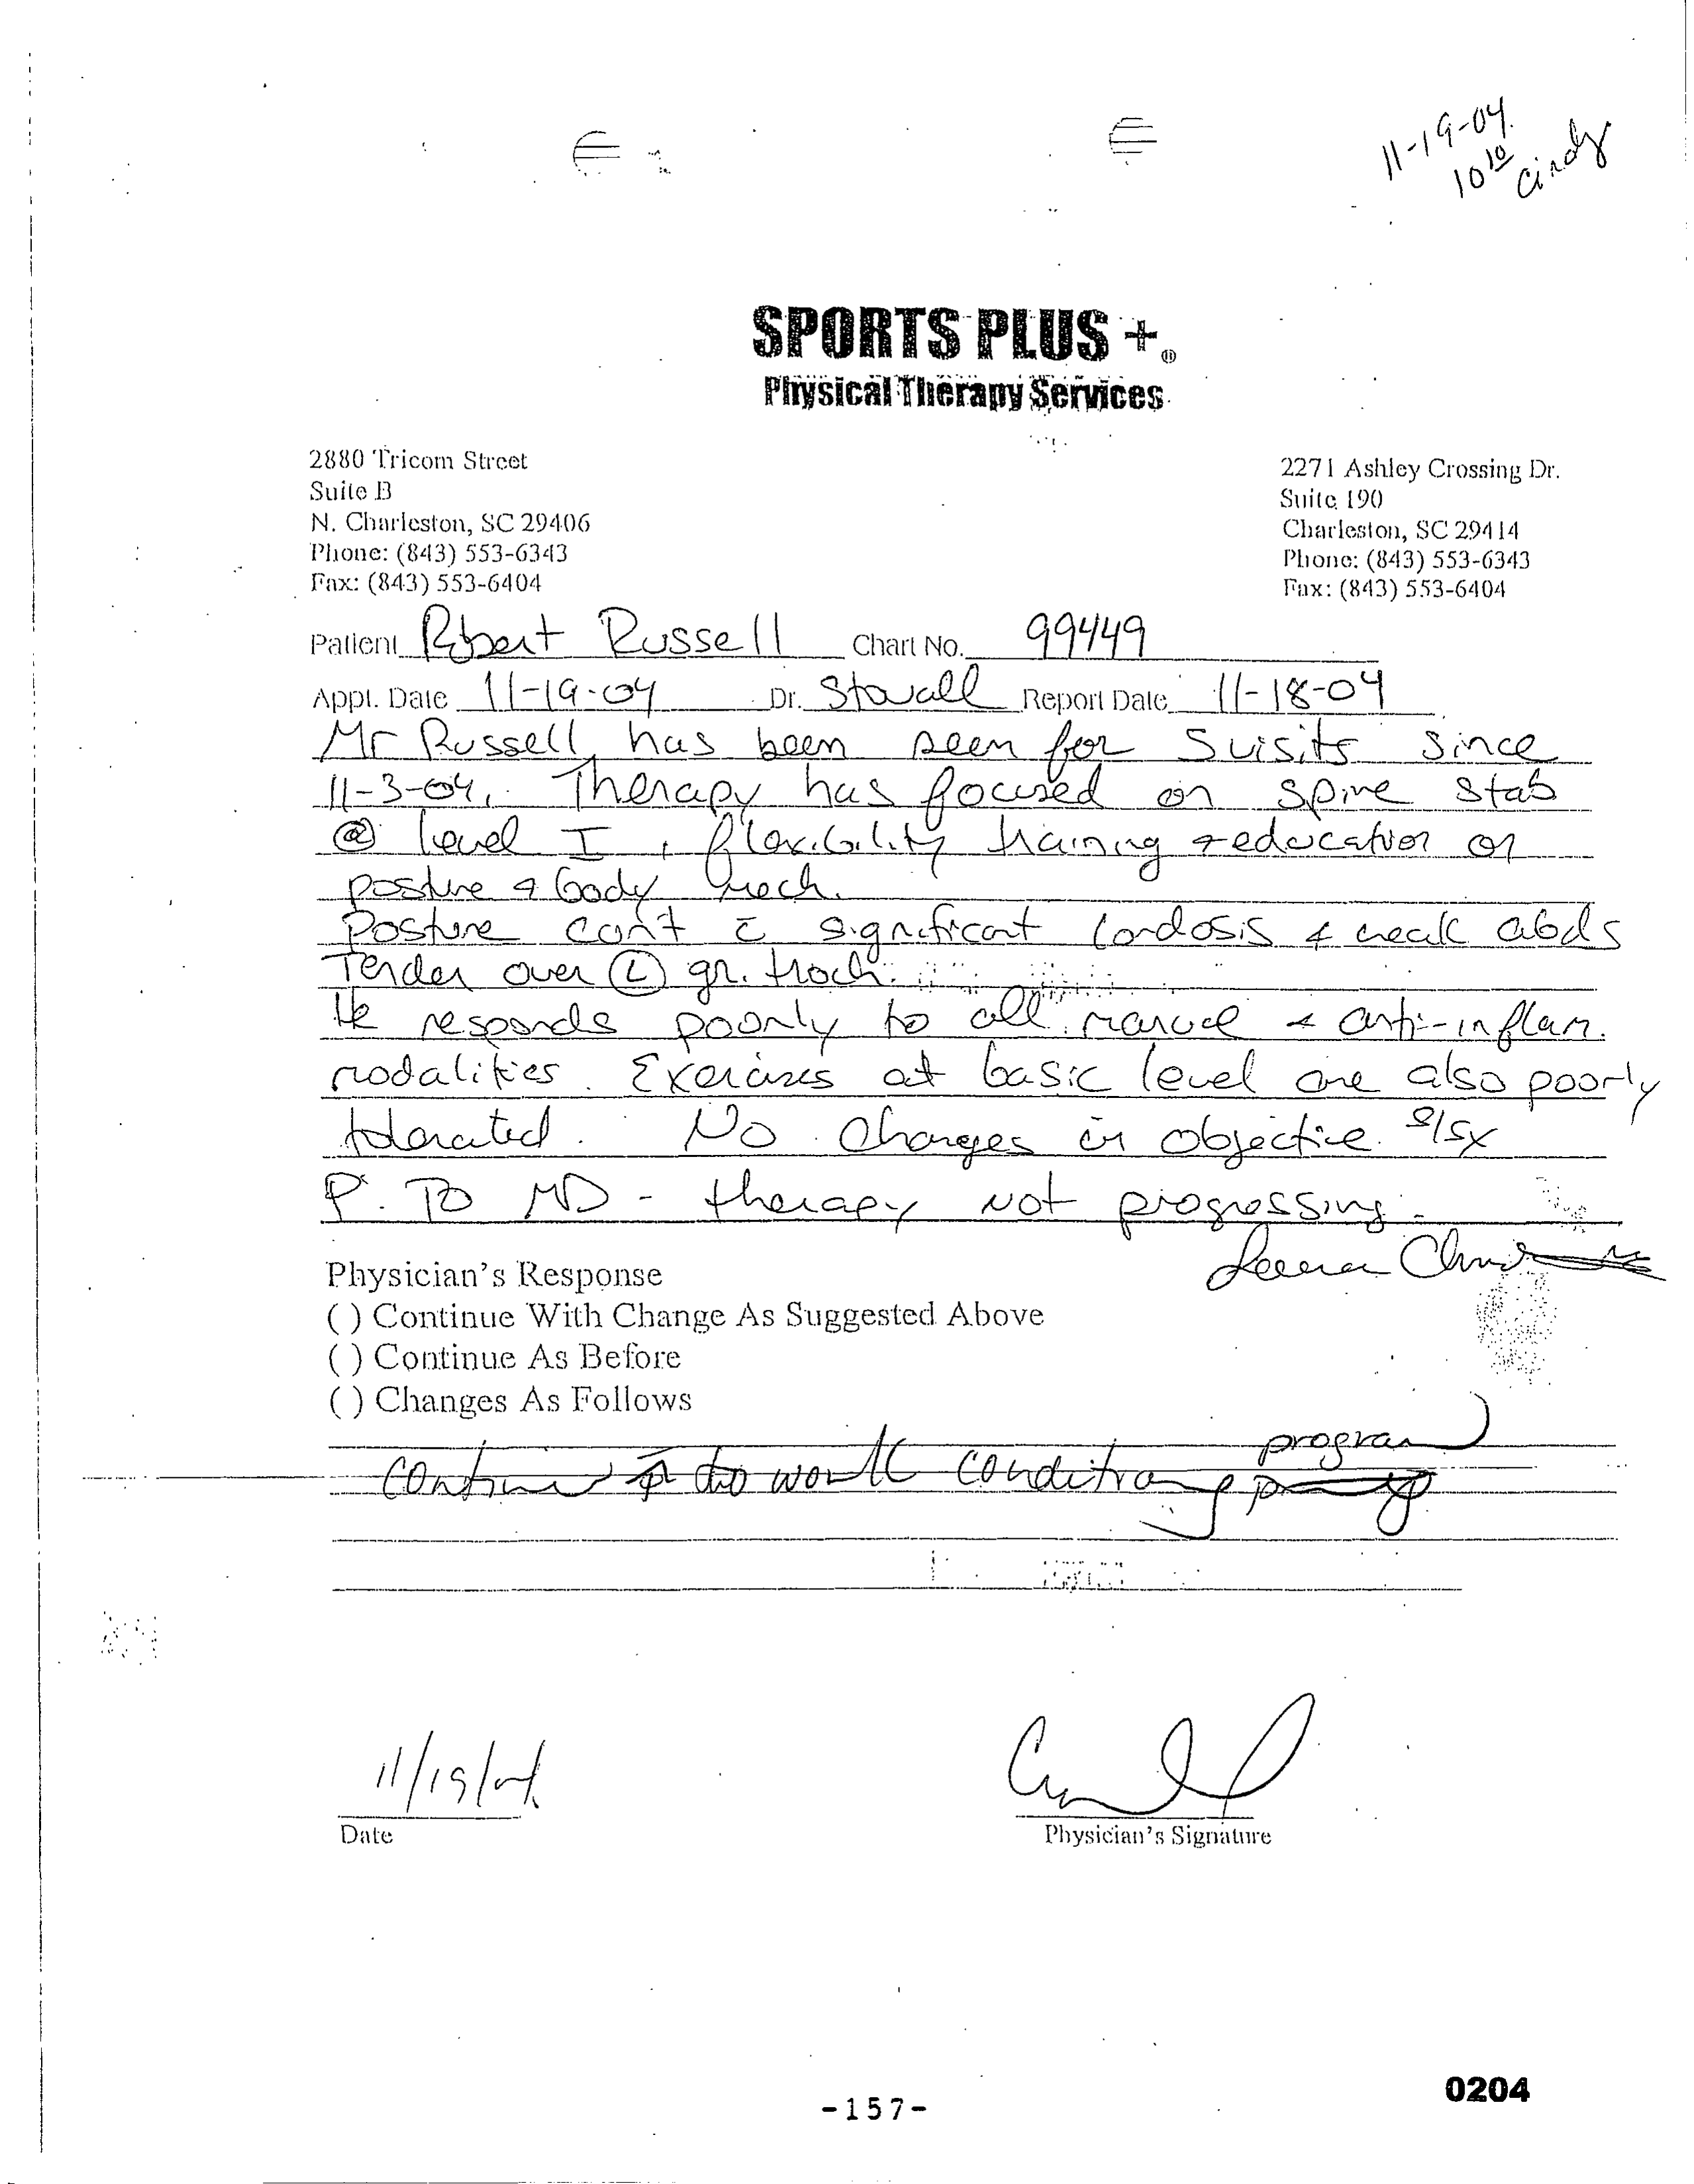 11-19-04.
10 10
Cindy
SPORTS PLUS +®
Physical Therapy Services
2880 Tricom Street
Suite B
N. Charleston, SC 29406
Phone: (843) 553-6343
Fax: (843) 553-6404
2271 Ashley Crossing Dr.
Suite 190
Charleston, SC 29414
Phone: (843) 553-6343
Fax: (843) 553-6404
Patient Robert Russell Chart No. 99449
Appt. Date 11-19-04 Dr. Stovall Report Date 11-18-04
Mr Russell has been seen for 5 visits since
11-3-04. Therapy has focused on spine stab
@ level I, flexibility training & education on
posture & body mech.
Posture con't c̄ significant lordosis & weak abds
Tender over Ⓛ gr. troch.
He responds poorly to all manual & anti-inflam.
modalities. Exercises at basic level are also poorly
tolerated. No changes in objective s/sx
P. To MD - therapy not progressing.
Physician's Response
( ) Continue With Change As Suggested Above
( ) Continue As Before
( ) Changes As Follows
program
continue to work conditioning
11/19/04
Date
Physician's Signature
-157-
0204